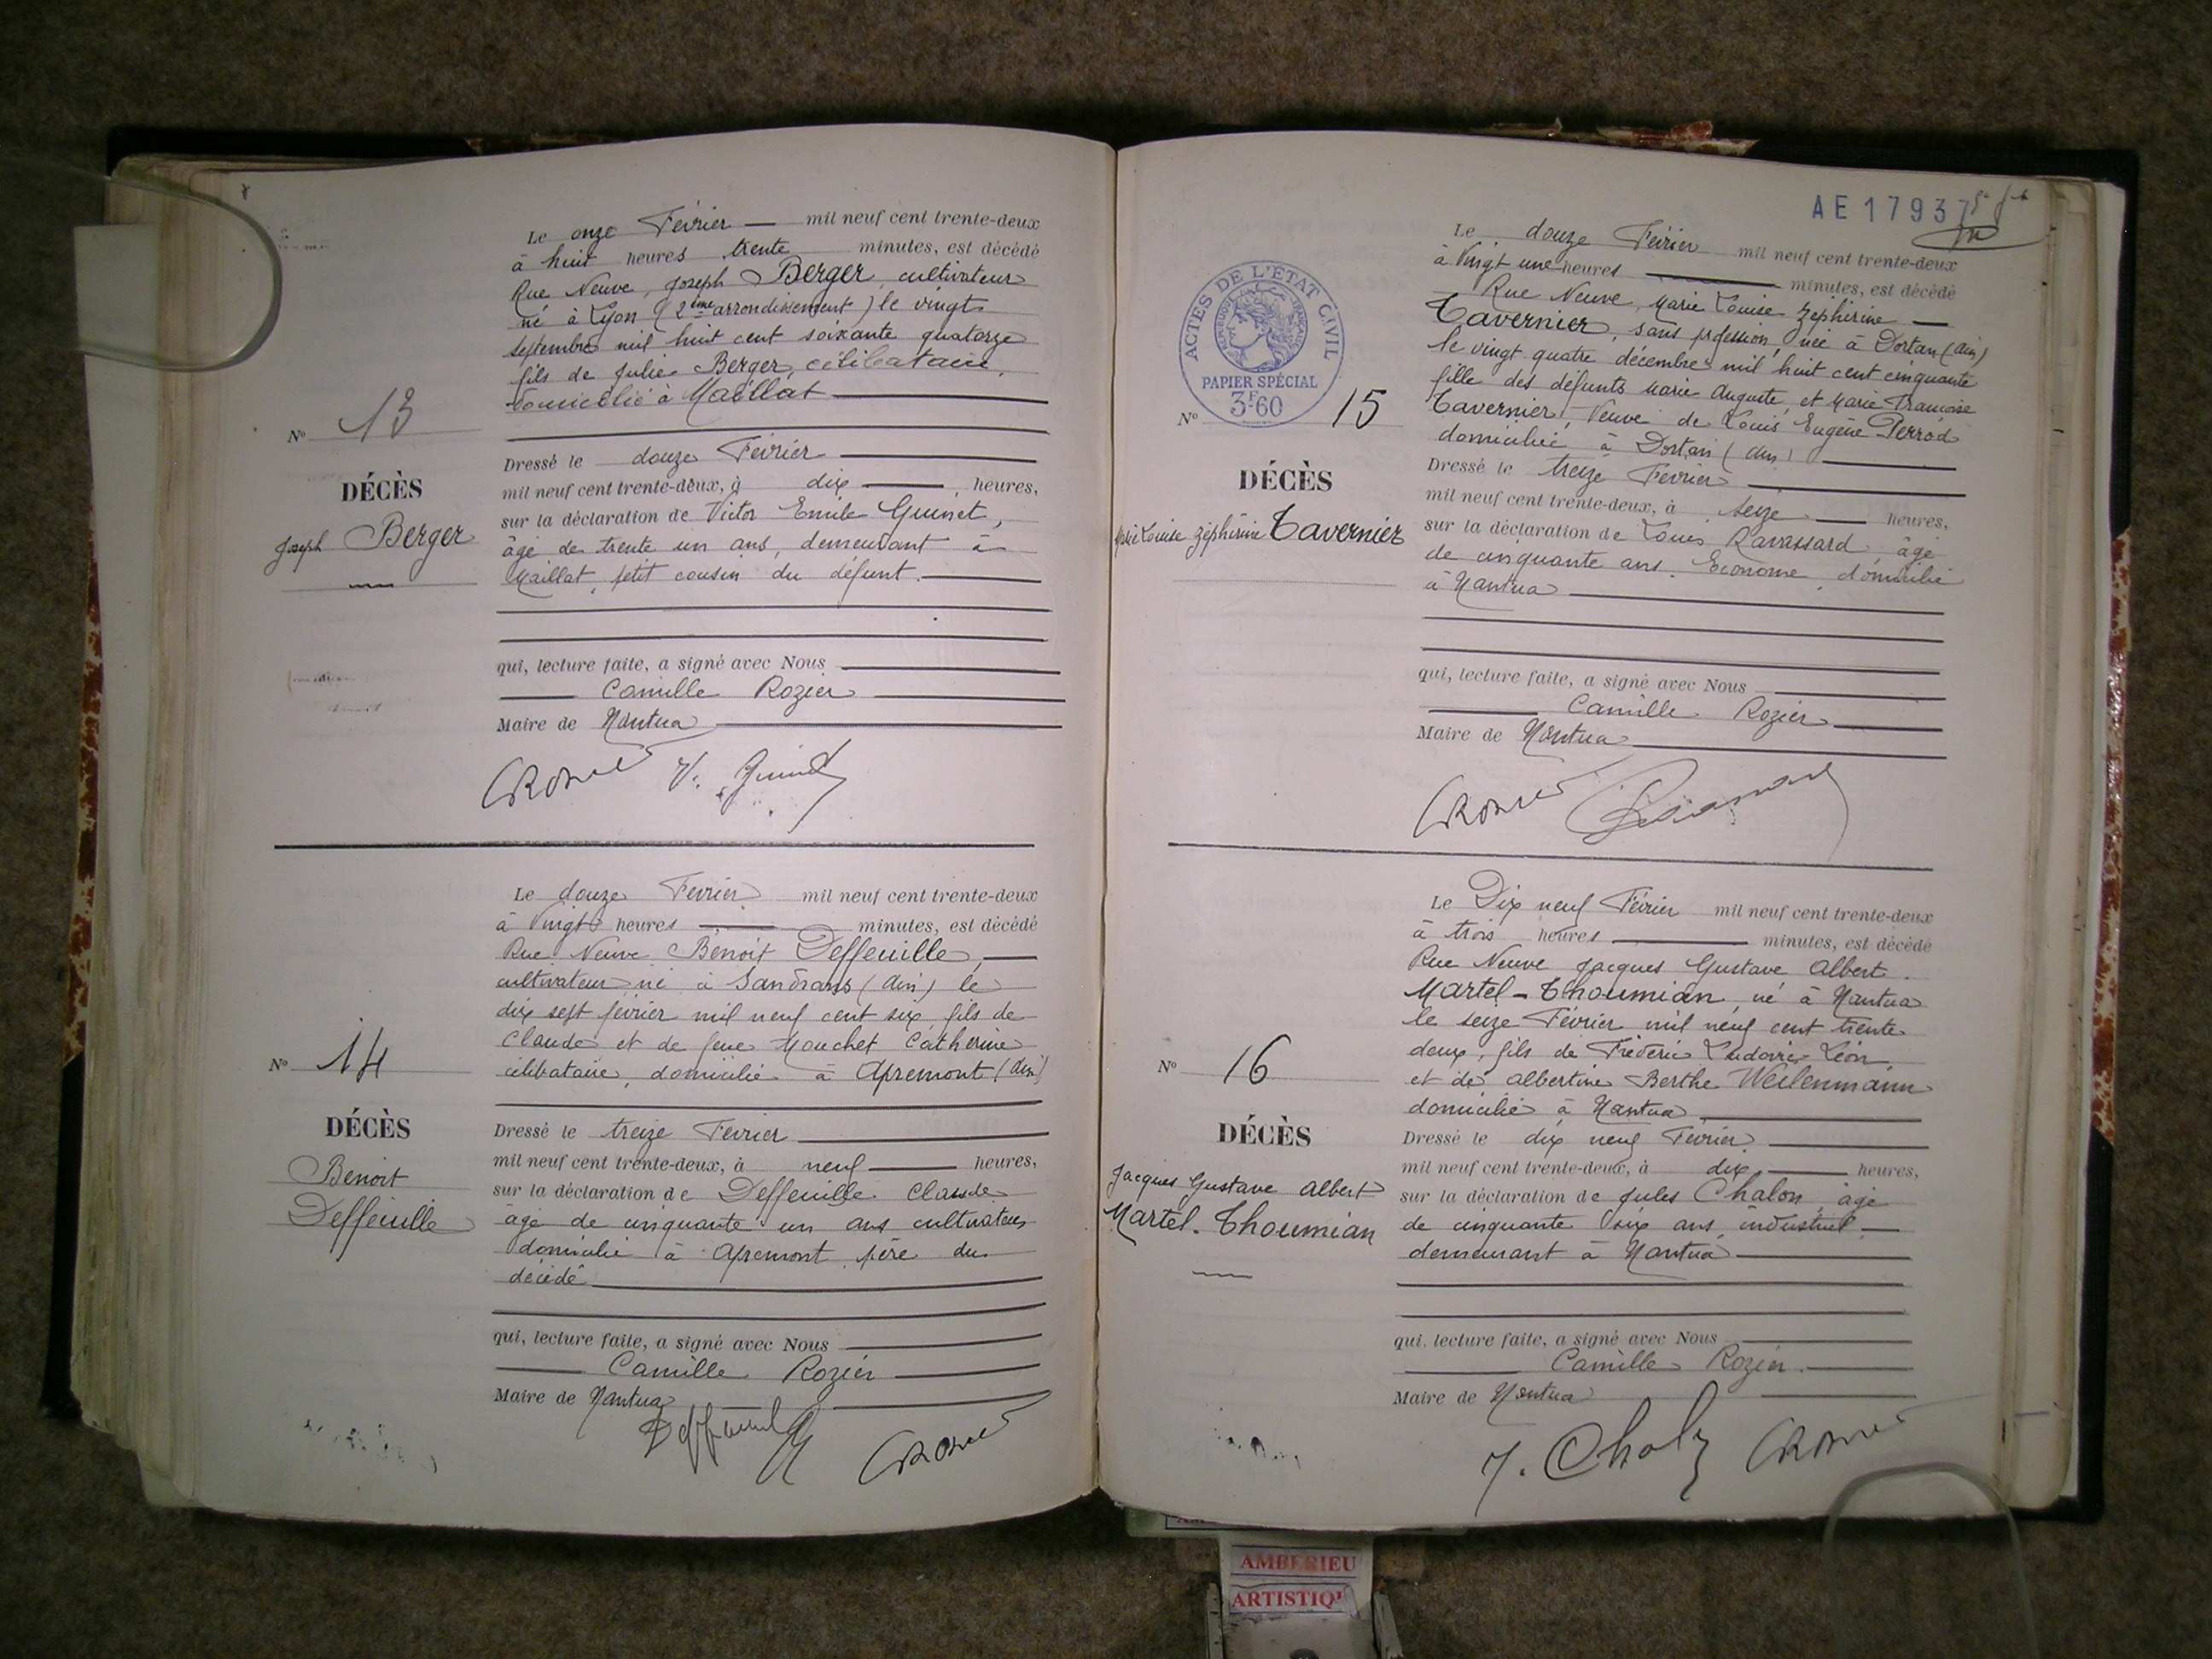 Le onze Février mil neuf cent trente-deux
à huit heures trente minutes, est décédé
Rue Neuve, Joseph Berger, cultivateur
né à Lyon (2ème arrondissement) le vingt
septembre mil huit cent soixante quatorze
fils de Julie Berger, célibataire,
domicilié à Maillat
Nº 13
DÉCÈS
Joseph Berger
Dressé le douze Février
mil neuf cent trente-deux, à dix heures,
sur la déclaration de Victor Emile Guinet,
âgé de trente un ans, demeurant à
Maillat, petit cousin du défunt.
qui, lecture faite, a signé avec Nous
Camille Rozier
Maire de Nantua
Le douze Février mil neuf cent trente-deux
à Vingt heures minutes, est décédé
Rue Neuve Benoit Deffeuille,
cultivateur né à Sandrans (Ain) le
dix sept février mil neuf cent six, fils de
Claude et de feue Mouchet Catherine
célibataire, domicilié à Apremont (Ain)
Nº 14
DÉCÈS
Benoit
Deffeuille
Dressé le treize Février
mil neuf cent trente-deux, à neuf heures,
sur la déclaration de Deffeuille Claude
âgé de cinquante un ans cultivateur
domicilié à Apremont, père du
décédé
qui, lecture faite, a signé avec Nous
Camille Rozier
Maire de Nantua
AE 1793
ACTES DE L'ÉTAT CIVIL
PAPIER SPÉCIAL
3F60
Le douze Février mil neuf cent trente-deux
à Vingt une heures minutes, est décédé
Rue Neuve, Marie Louise Zéphirine
Tavernier, sans profession, née à Dortan (Ain)
le vingt quatre décembre mil huit cent cinquante
fille des défunts Marie Auguste, et Marie Françoise
Tavernier, Veuve de Louis Eugène Perrod
domiciliée à Dortan (Ain)
Nº 15
DÉCÈS
Marie Louise Zéphirine Tavernier
Dressé le treize Février
mil neuf cent trente-deux, à seize heures,
sur la déclaration de Louis Ravassard âgé
de cinquante ans. Econome, domicilié
à Nantua
qui, lecture faite, a signé avec Nous
Camille Rozier
Maire de Nantua
Le Dix neuf Février mil neuf cent trente-deux
à trois heures minutes, est décédé
Rue Neuve Jacques Gustave Albert
Martel-Thoumian, né à Nantua
le seize Février mil neuf cent trente
deux, fils de Frédéric Ludovic Léon
et de Albertine Berthe Weilenmann
domicilié à Nantua
Nº 16
DÉCÈS
Jacques Gustave Albert
Martel-Thoumian
Dressé le dix neuf Février
mil neuf cent trente-deux, à dix heures,
sur la déclaration de Jules Chalon, âgé
de cinquante six ans, industriel
demeurant à Nantua
qui, lecture faite, a signé avec Nous
Camille Rozier.
Maire de Nantua
AMBERIEU
ARTISTIQ